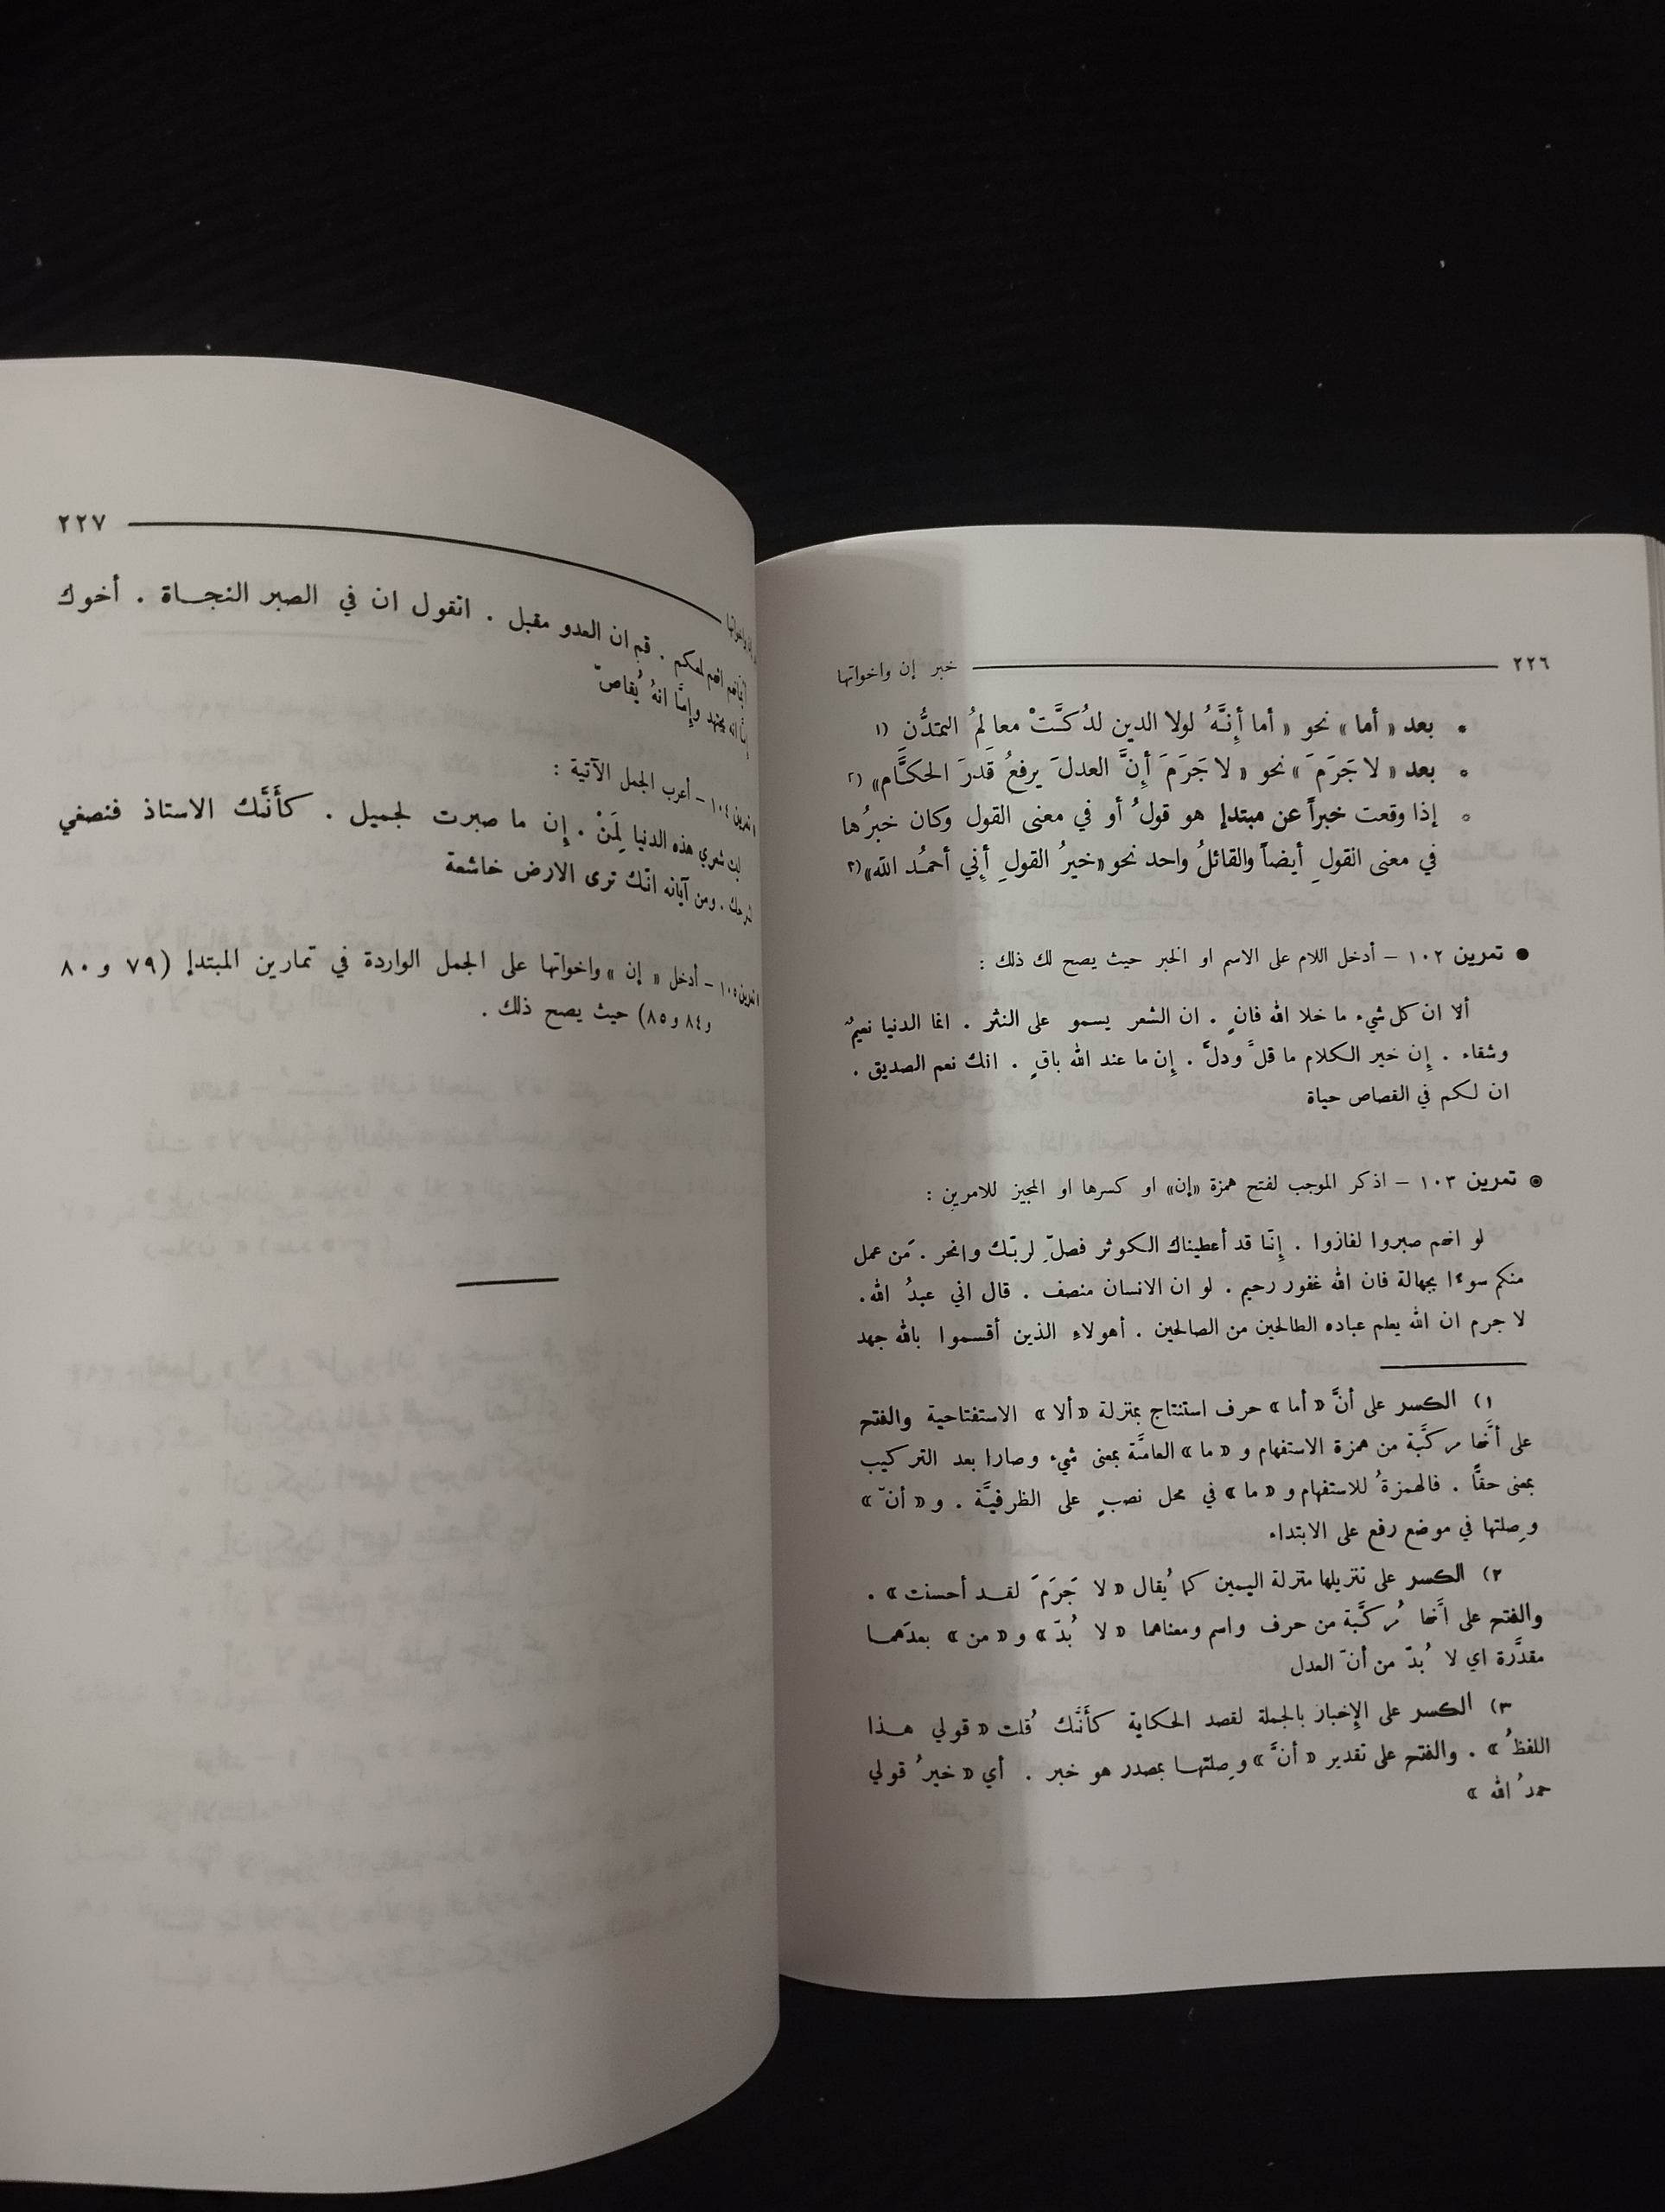 ٢٢٦ خبر إن واخواتها
• بعد « أما » نحو « أما أِنَّهُ لولا الدين لدُكَّتْ معالمُ التمدُّن (١
• بعد « لا جَرَمَ » نحو « لا جَرَمَ أِنَّ العدلَ يرفعُ قَدرَ الحكَّام» (٢
• إذا وقعت خبراً عن مبتدإ هو قولٌ أو في معنى القول وكان خبرُها
في معنى القولِ أيضاً والقائلُ واحد نحو «خيرُ القولِ أِني أحمدُ الله» (٣
● تمرين ١٠٢ – أدخل اللام على الاسم او الخبر حيث يصح لك ذلك :
ألا ان كل شيء ما خلا الله فانٍ . ان الشعر يسمو على النثر . انما الدنيا نعيمٌ
وشقاء . إن خير الكلام ما قلَّ ودلَّ . إن ما عند الله باقٍ . انك نعم الصديق .
ان لكم في القصاص حياة
● تمرين ١٠٣ – اذكر الموجب لفتح همزة «إن» او كسرها او المجيز للامرين :
لو انهم صبروا لفازوا . إنّا قد أعطيناك الكوثر فصلِّ لربّك وانحر . مَن عمل
منكم سوءًا بجهالة فان الله غفور رحيم . لو ان الانسان منصف . قال اني عبدُ الله.
لا جرم ان الله يعلم عباده الطالحين من الصالحين . أهولاءِ الذين أقسموا بالله جهد
١) الكسر على أنَّ « أما » حرف استنتاج بمنزلة « ألا » الاستفتاحية والفتح
على أنَّها مركَّبة من همزة الاستفهام و « ما » العامَّة بمعنى شيء وصارا بعد التركيب
بمعنى حقًّا . فالهمزةُ للاستفهام و « ما » في محل نصبٍ على الظرفيَّة . و « أنّ »
وصِلتها في موضع رفع على الابتداء
٢) الكسر على تنزيلها منزلة اليمين كما يُقال « لا جَرَمَ لقد أحسنت » .
والفتح على انَّها مُركَّبة من حرف واسم ومعناهما « لا بُدّ » و « من » بعدَهما
مقدَّرة اي لا بُدّ من أنَّ العدل
٣) الكسر على الإِخبار بالجملة لقصد الحكاية كأَنَّك قُلت « قولي هذا
اللفظُ » . والفتح على تقدير « أنَّ » وصِلتها بمصدر هو خبر . أي « خيرُ قولي
حمدُ الله »
واخواتها ٢٢٧
انهم لمعكم . قم ان العدو مقبل . اتقول ان في الصبر النجاة . أخوك
انه يجتهد وإمَّا انهُ يُقاصّ
تمرين ١٠٤ – أعرب الجمل الآتية :
ليت شعري هذه الدنيا لِمَنْ . إن ما صبرت لجميل . كأَنَّك الاستاذ فنصغي
لشرحك . ومن آياته انّك ترى الارض خاشعة
تمرين ١٠٥ – أدخل « إن » واخواتها على الجمل الواردة في تمارين المبتدإ (٧٩ و ٨٠
و٨٤ و٨٥) حيث يصح ذلك .